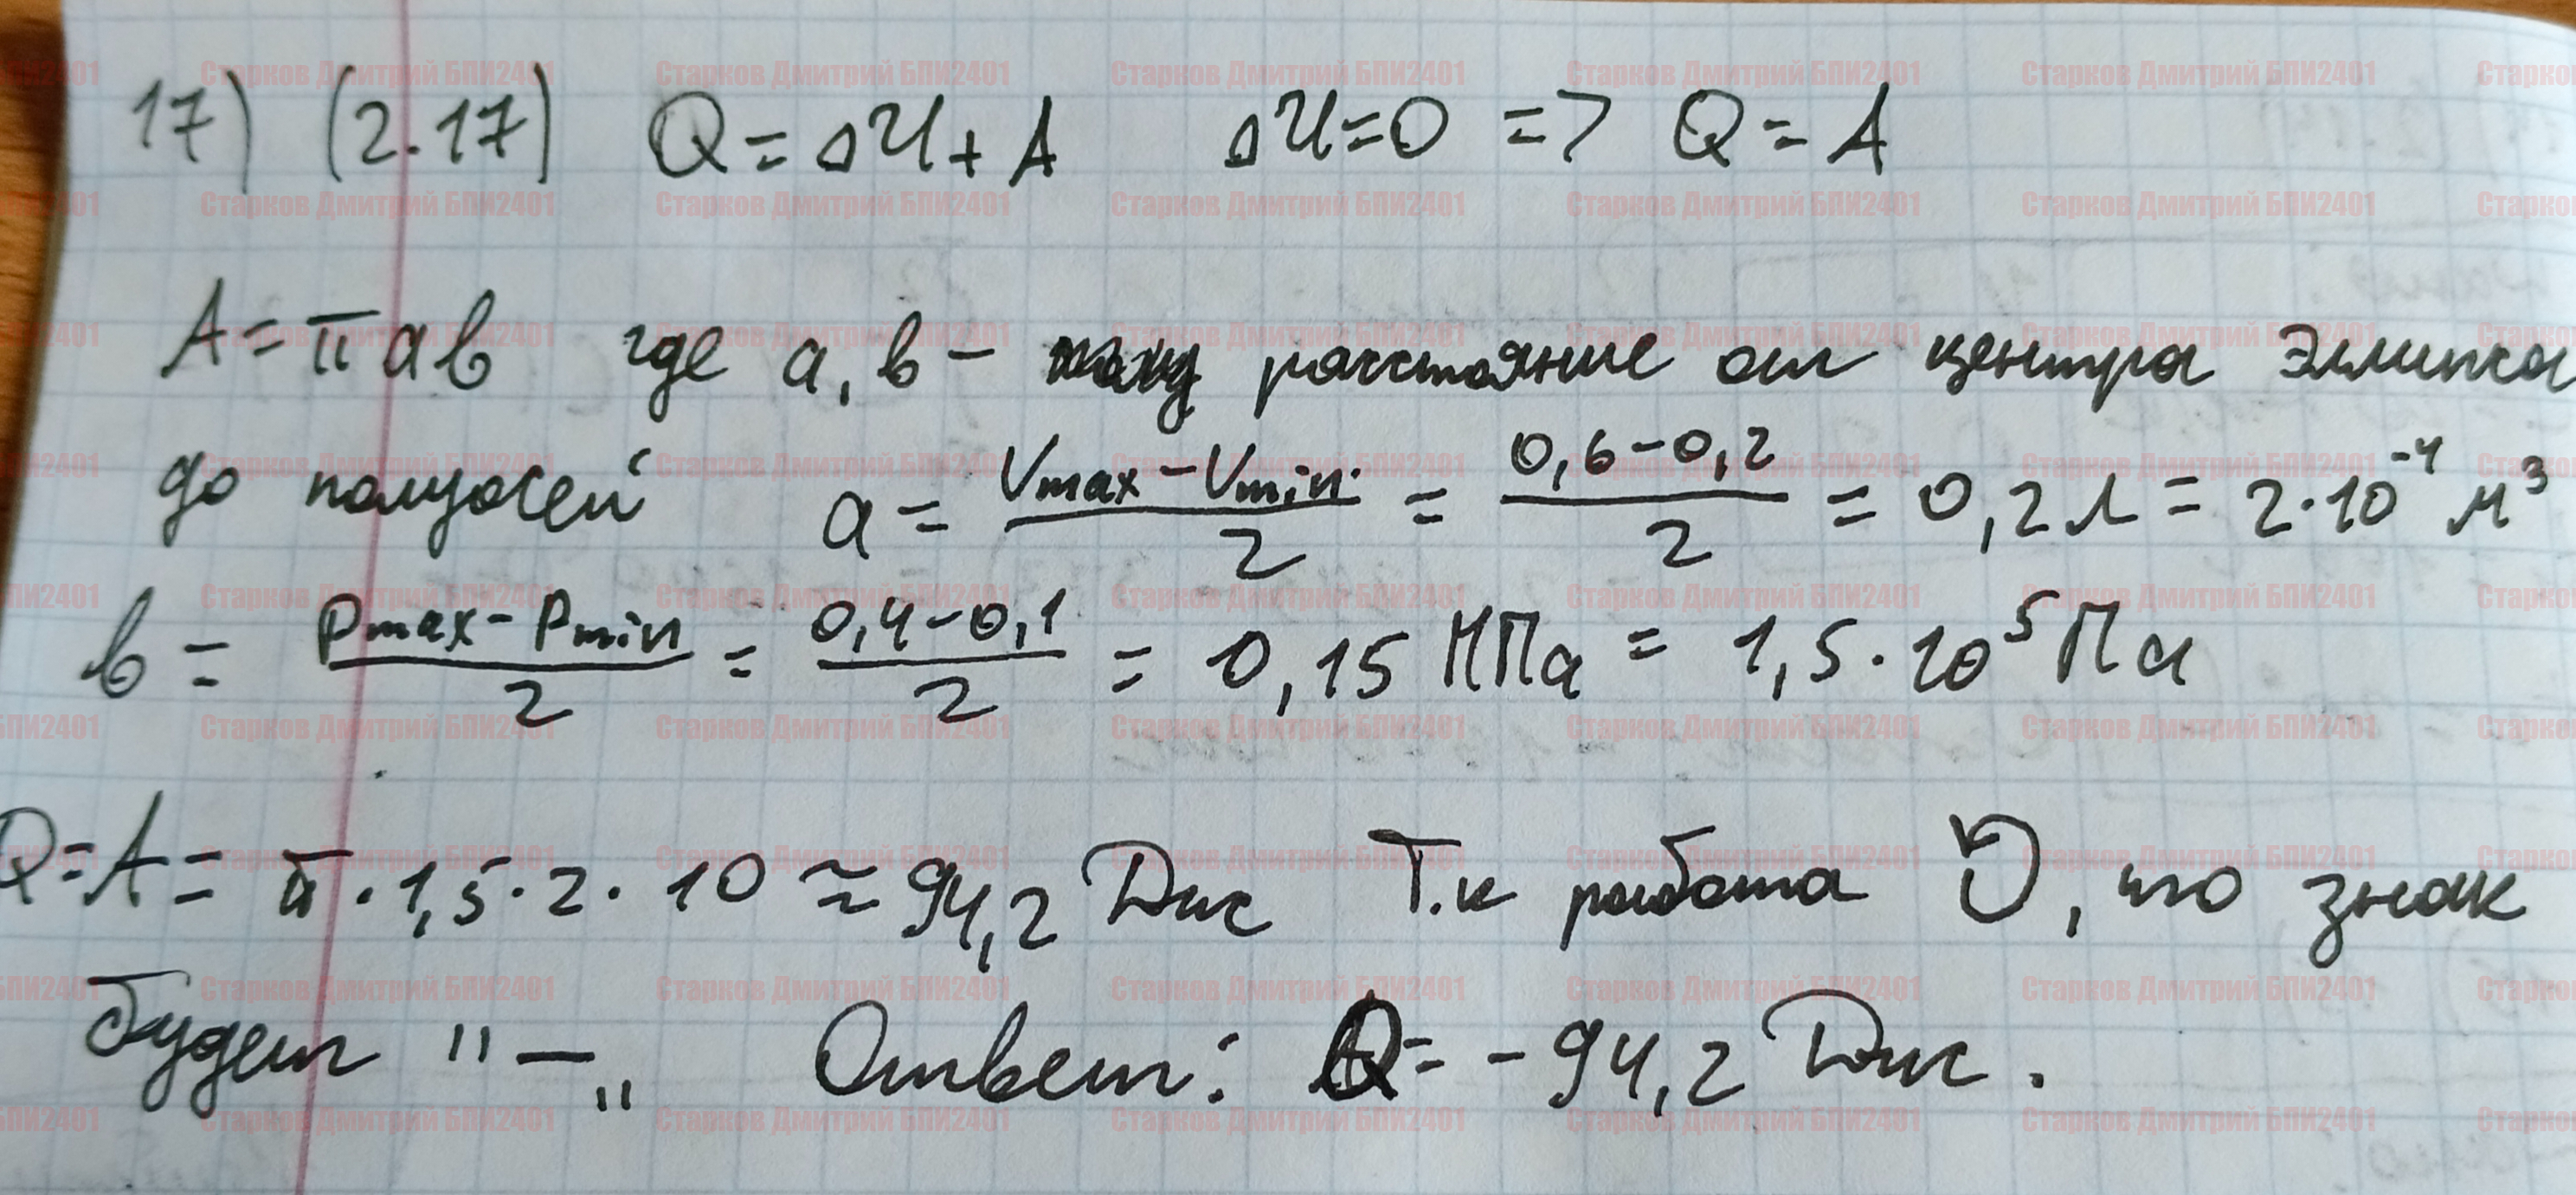 17) (2.17) Q = ΔU + A ΔU = 0 => Q = A
A = π a b где a, b - расстояние от центра эллипса
до полуосей a = (Vmax - Vmin)/2 = (0,6 - 0,2)/2 = 0,2 л = 2·10⁻⁴ м³
b = (Pmax - Pmin)/2 = (0,4 - 0,1)/2 = 0,15 МПа = 1,5·10⁵ Па
Q = A = π · 1,5 · 2 · 10 ≈ 94,2 Дж Т.к работа ↺, то знак
будет "—" Ответ: Q = - 94,2 Дж.
Старков Дмитрий БПИ2401